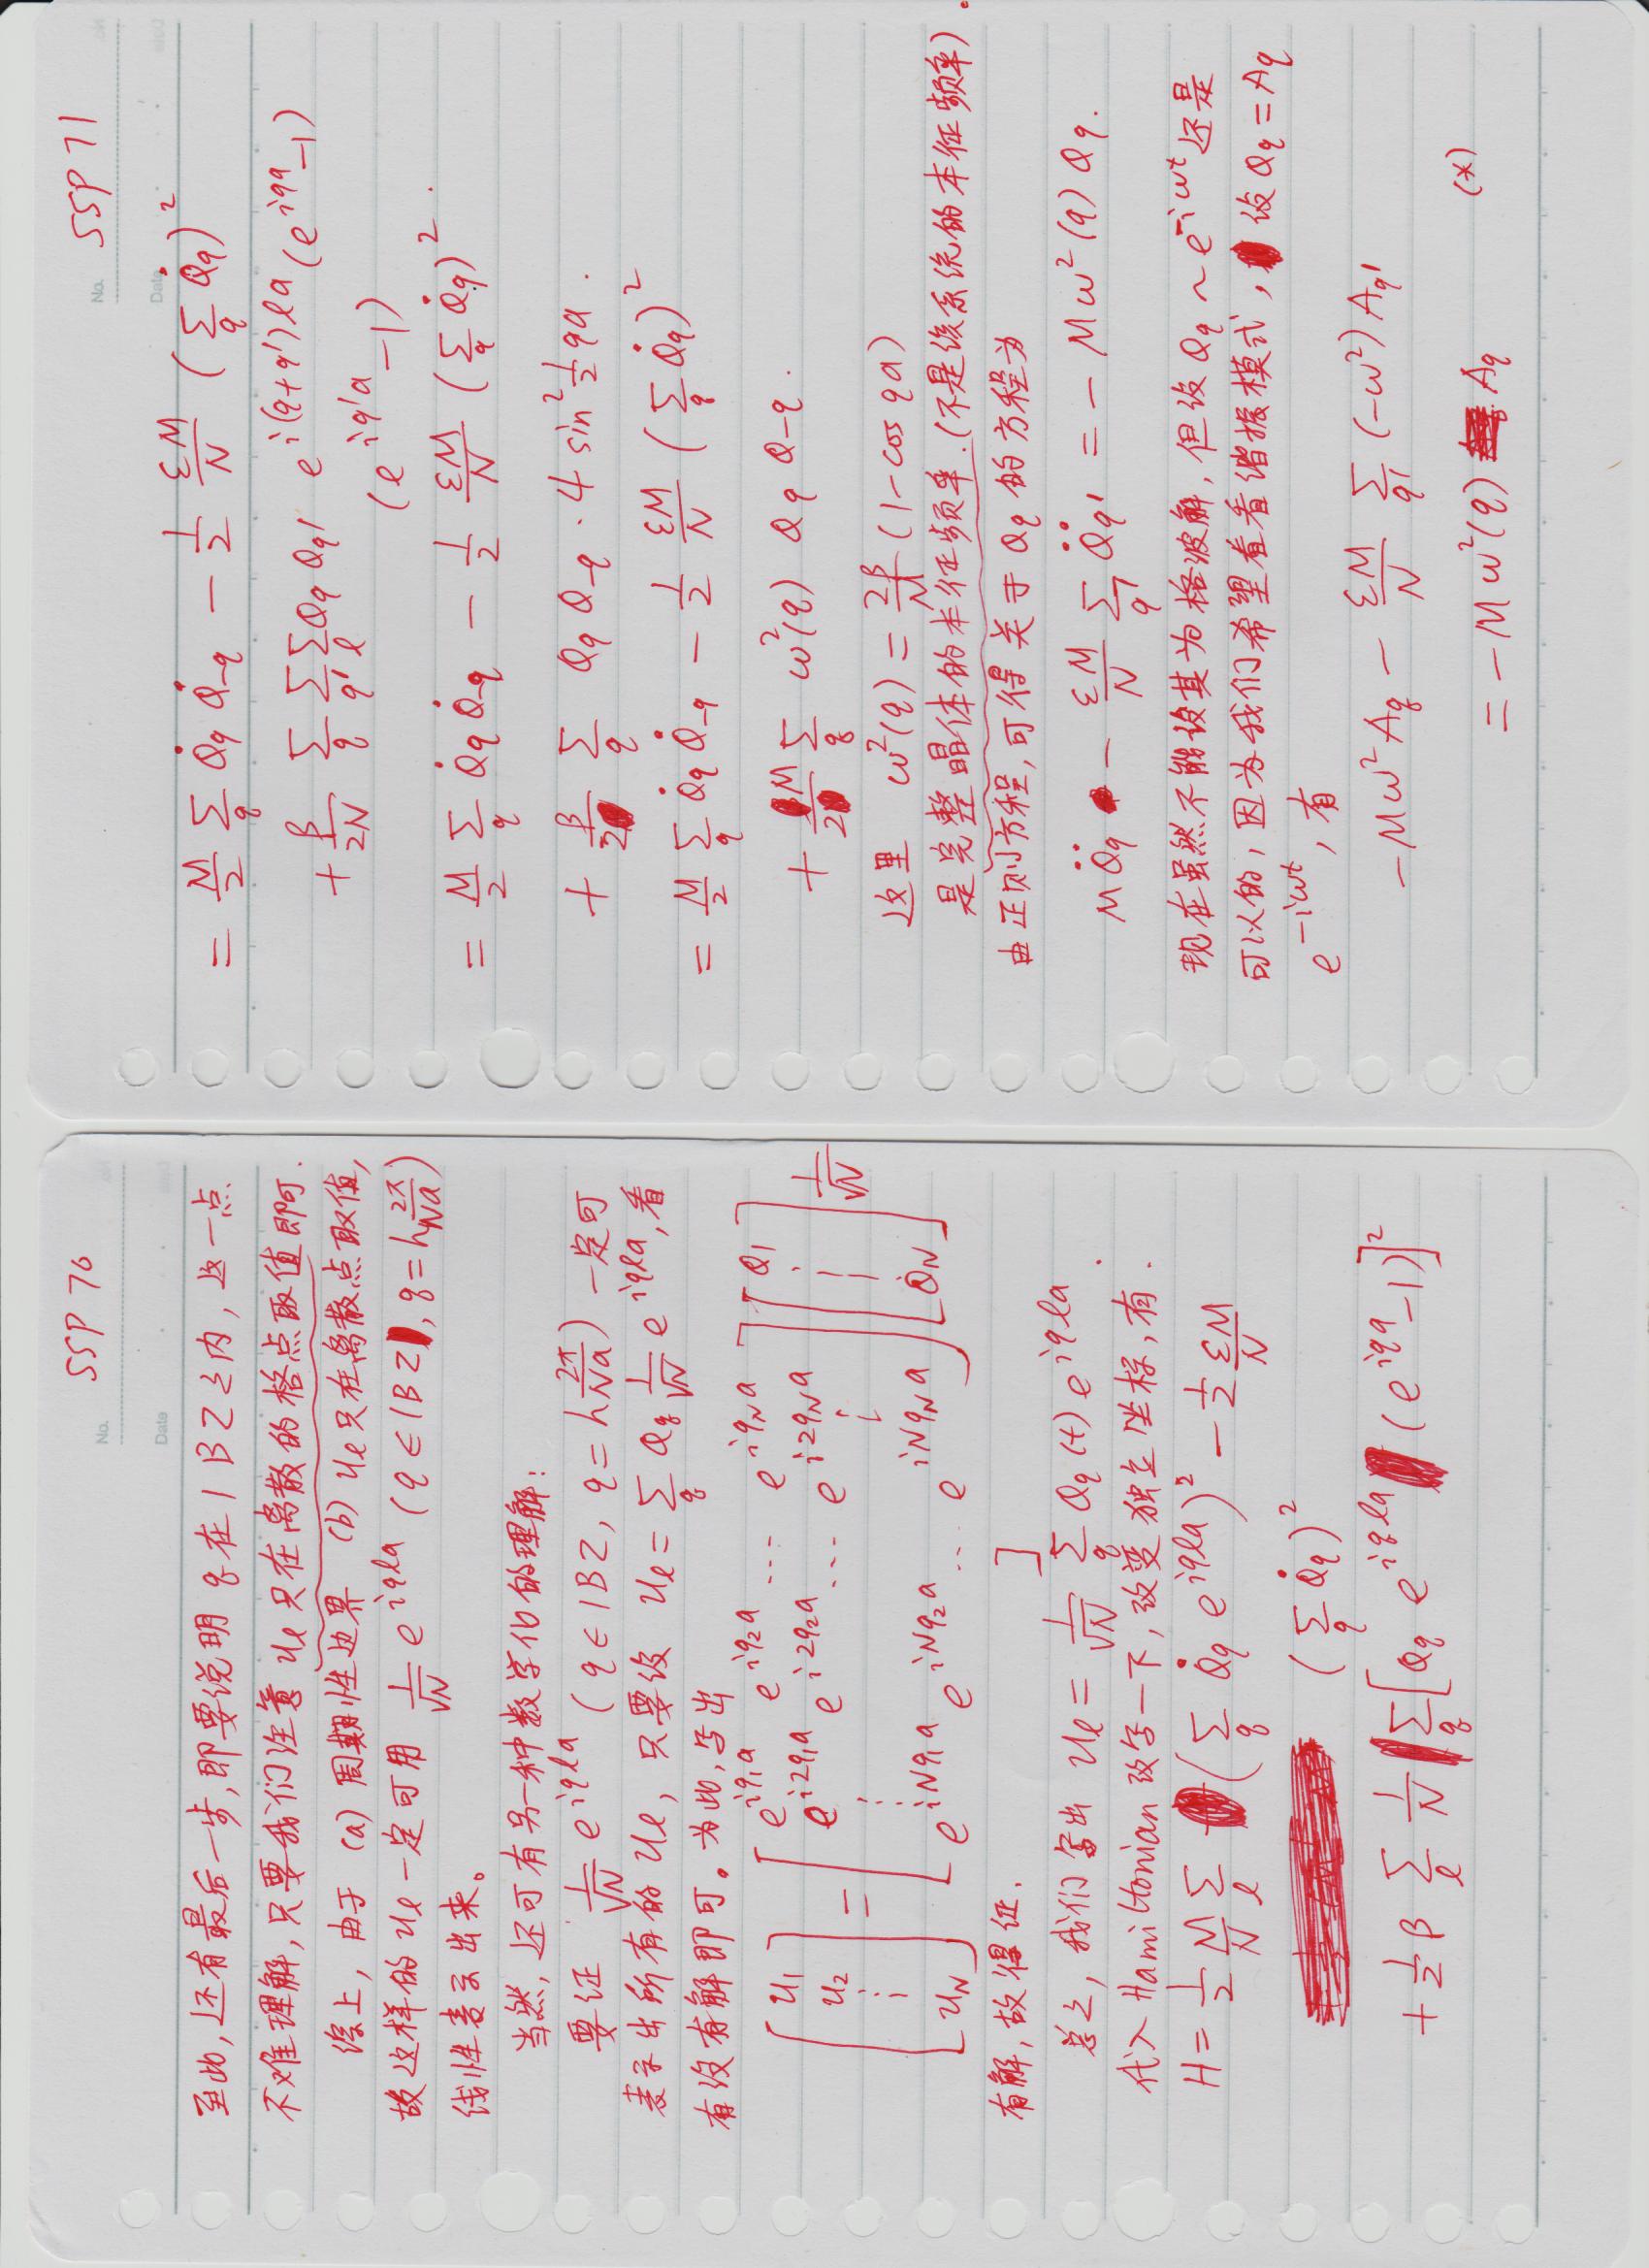 No. SSP 70
Date
至此,还有最后一步,即要说明 q 在 1 BZ 之内, 这一点
不难理解,只要我们注意 u_l 只在离散的格点取值即可.
综上, 由于 (a) 周期性边界 (b) u_l 只在离散点取值,
故这样的 u_l 一定可用 1/√N e^{iqla} (q∈1BZ, q=h 2π/Na)
线性表示出来。
当然, 还可有另一种数学化的理解:
要证 1/√N e^{iqla} (q∈1BZ, q=h 2π/Na) 一定可
表示出所有的 u_l, 只要设 u_l = Σ_q Q_q 1/√N e^{iqla}, 看
有没有解即可。为此, 写出
[u_1 u_2 ⋮ u_N] = [e^{iq_1a} e^{iq_2a} ... e^{iq_Na}
e^{i2q_1a} e^{i2q_2a} ... e^{i2q_Na}
⋮ ⋮
e^{iNq_1a} e^{iNq_2a} ... e^{iNq_Na}] [Q_1 ⋮ Q_N] 1/√N
有解, 故得证. ]
总之, 我们写出 u_l = 1/√N Σ_q Q_q(t) e^{iqla}.
代入 Hamiltonian 改写一下, 改变独立坐标, 有.
H = 1/2 M/N Σ_l (Σ_q Q̇_q e^{iqla})² − 1/2 εM/N
(Σ_q Q̇_q)²
+ 1/2 β Σ_l 1/N Σ_q [Q_q e^{iqla} (e^{iqa}−1)]²
No. SSP 71
Date
= M/2 Σ_q Q̇_q Q̇_{-q} − 1/2 εM/N (Σ_q Q̇_q)²
+ β/2N Σ_q Σ_q' Σ_l Q_q Q_q' e^{i(q+q')la} (e^{iqa}−1)
(e^{iq'a}−1)
= M/2 Σ_q Q̇_q Q̇_{-q} − 1/2 εM/N (Σ_q Q̇_q)².
+ β/2 Σ_q Q_q Q_{-q} · 4 sin² 1/2 qa.
= M/2 Σ_q Q̇_q Q̇_{-q} − 1/2 εM/N (Σ_q Q̇_q)²
+ M/2 Σ_q ω²(q) Q_q Q_{-q}.
这里 ω²(q) = 2β/M (1−cos qa)
是完整晶体的本征频率.(不是该系统的本征频率).
由正则方程, 可得关于 Q_q 的方程为
M Q̈_q − εM/N Σ_q' Q̈_q' = − Mω²(q) Q_q.
现在虽然不能设其为格波解, 但设 Q_q ~ e^{-iωt} 还是
可以的, 因为我们希望看看谐振模式, 设 Q_q = A_q
e^{-iωt}, 有
−Mω² A_q − εM/N Σ_q' (−ω²) A_q'
= − Mω²(q) A_q (*)